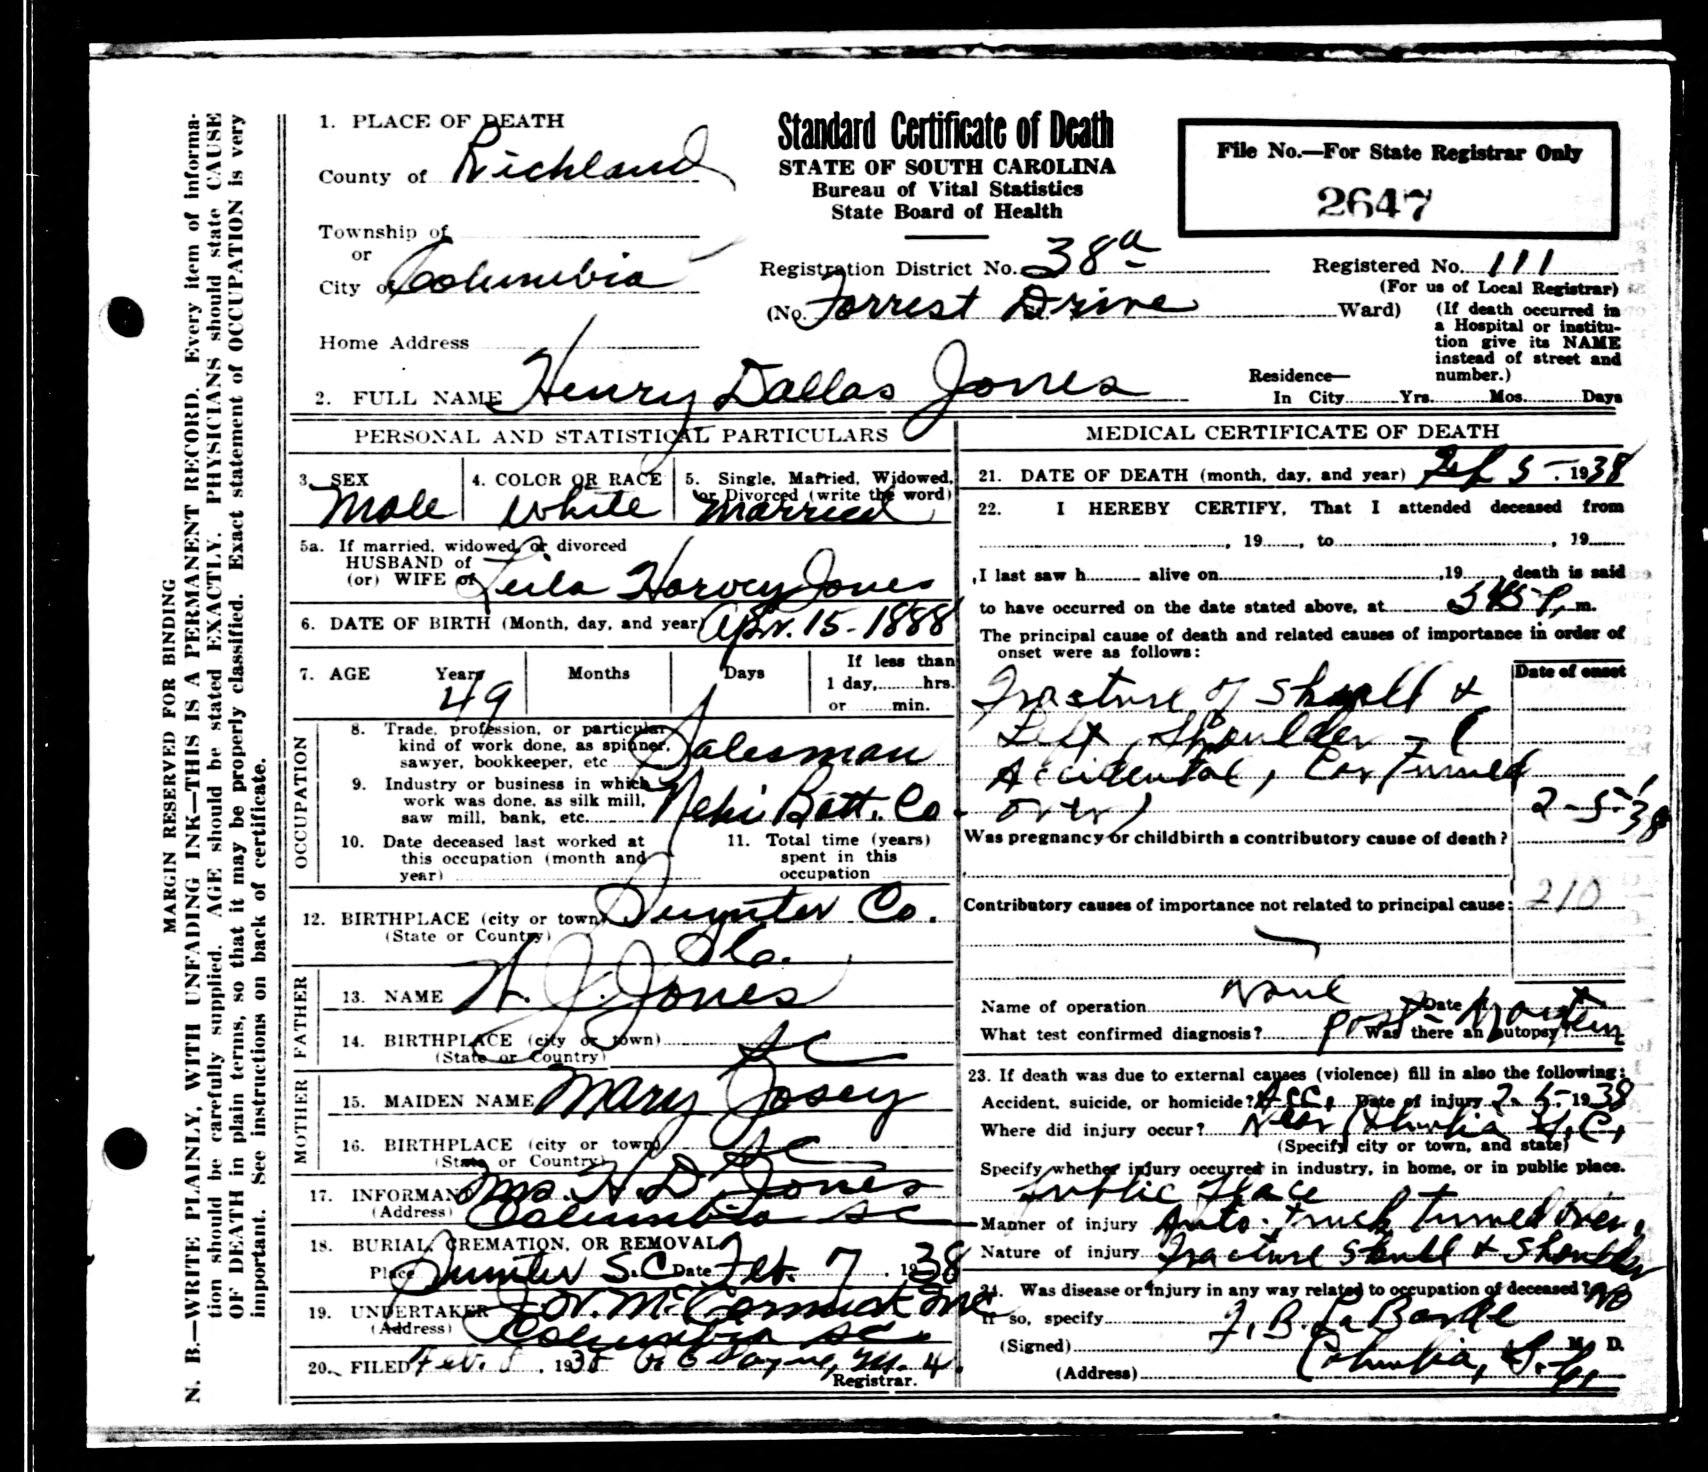 MARGIN RESERVED FOR BINDING
N. B.—WRITE PLAINLY, WITH UNFADING INK—THIS IS A PERMANENT RECORD. Every item of informa-
tion should be carefully supplied. AGE should be stated EXACTLY. PHYSICIANS should state CAUSE
OF DEATH in plain terms, so that it may be properly classified. Exact statement of OCCUPATION is very
important. See instructions on back of certificate.
1. PLACE OF DEATH
County of Richland
Township of
or
City of Columbia
Home Address
Standard Certificate of Death
STATE OF SOUTH CAROLINA
Bureau of Vital Statistics
State Board of Health
File No.—For State Registrar Only
2647
Registration District No. 38a
Registered No. 111
(For us of Local Registrar)
(No. Forrest Drive Ward)
(If death occurred in
a Hospital or institu-
tion give its NAME
instead of street and
number.)
Residence—
In City Yrs. Mos. Days
2. FULL NAME Henry Dallas Jones
PERSONAL AND STATISTICAL PARTICULARS
3. SEX
Male
4. COLOR OR RACE
White
5. Single, Married, Widowed,
or Divorced (write the word)
Married
5a. If married, widowed, or divorced
HUSBAND of
(or) WIFE of Leila Harvey Jones
6. DATE OF BIRTH (Month, day, and year) Apr. 15-1888
7. AGE Years Months Days
49
If less than
1 day, hrs.
or min.
OCCUPATION
8. Trade, profession, or particular
kind of work done, as spinner,
sawyer, bookkeeper, etc Salesman
9. Industry or business in which
work was done, as silk mill,
saw mill, bank, etc. Nehi Bott. Co.
10. Date deceased last worked at
this occupation (month and
year)
11. Total time (years)
spent in this
occupation
12. BIRTHPLACE (city or town) Sumter Co.
(State or Country)
FATHER
13. NAME H. J. Jones
14. BIRTHPLACE (city or town)
(State or Country) SC
MOTHER
15. MAIDEN NAME Mary Josey
16. BIRTHPLACE (city or town)
(State or Country) SC
17. INFORMANT Mrs. H. D. Jones
(Address) Columbia SC
18. BURIAL, CREMATION, OR REMOVAL
Place Sumter S.C Date Feb. 7, 1938
19. UNDERTAKER J. W. McCormick Inc
(Address) Columbia SC.
20. FILED Feb. 8, 1938 Payne, M. D.
Registrar.
MEDICAL CERTIFICATE OF DEATH
21. DATE OF DEATH (month, day, and year) Feb 5-, 1938
22. I HEREBY CERTIFY, That I attended deceased from
, 19 , to , 19
I last saw h alive on , 19 , death is said
to have occurred on the date stated above, at 545 P. m.
The principal cause of death and related causes of importance in order of
onset were as follows:
Date of onset
Fracture of Skull &
Left Shoulder - (
Accidental, Car Turned
over) 2-5-'38
Was pregnancy or childbirth a contributory cause of death?
Contributory causes of importance not related to principal cause:
210
Name of operation None Date
What test confirmed diagnosis? Post-Mortem Was there an autopsy?
23. If death was due to external causes (violence) fill in also the following:
Accident, suicide, or homicide? Acc. Date of injury 2-5-1938
Where did injury occur? Near Columbia S.C.
(Specify city or town, and state)
Specify whether injury occurred in industry, in home, or in public place.
Public Place
Manner of injury Auto-truck turned over.
Nature of injury Fracture Skull & Shoulder
24. Was disease or injury in any way related to occupation of deceased? No
If so, specify
(Signed) F. B. La Borde M. D.
(Address) Columbia, S.C.